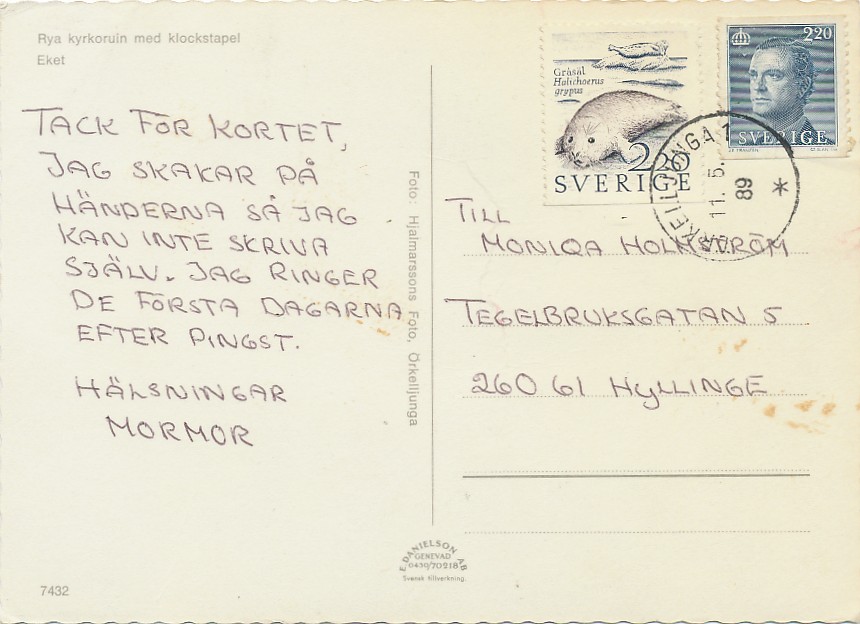 Rya kyrkoruin med klockstapel
Eket
TACK FÖR KORTET,
JAG SKAKAR PÅ
HÄNDERNA SÅ JAG
KAN INTE SKRIVA
SJÄLV. JAG RINGER
DE FÖRSTA DAGARNA
EFTER PINGST.
HÄLSNINGAR
MORMOR
7432
Foto: Hjalmarssons Foto, Örkelljunga
E. DANIELSON AB
GENEVAD
0430/70218
Svensk tillverkning.
Gråsäl
Halichoerus
grypus
2.20
SVERIGE
2.20
SVERIGE
ÖRKELLJUNGA 1
11. 5.
89
*
TILL
MONIQA HOLMSTRÖM
TEGELBRUKSGATAN 5
260 61 HYLLINGE